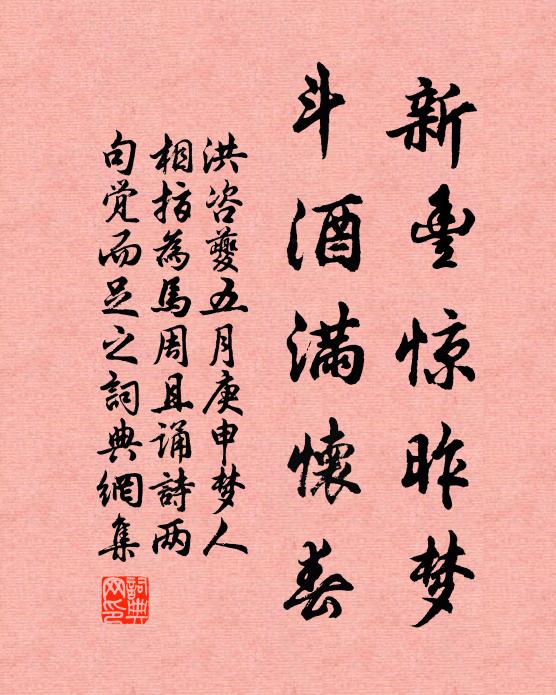 新豊惊昨梦
斗酒满懷春
洪咨夔五月庚申梦人
相指為馬周且诵詩两
句觉而足之詞典網集
詞典網印